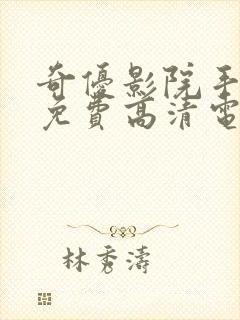 奇優影院手
免費高清電
林秀濤